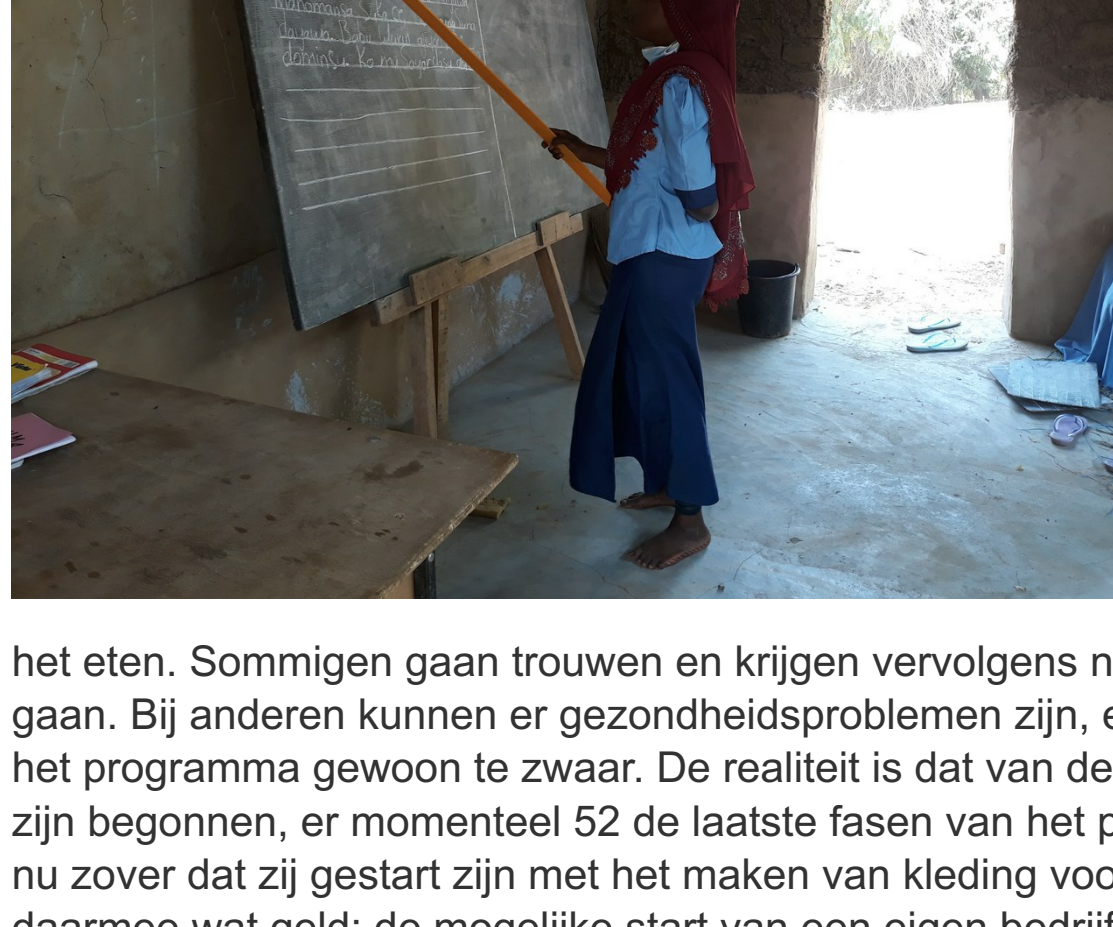 het eten. Sommigen gaan trouwen en krijgen vervolgens
gaan. Bij anderen kunnen er gezondheidsproblemen zijn,
het programma gewoon te zwaar. De realiteit is dat van de
zijn begonnen, er momenteel 52 de laatste fasen van het
nu zover dat zij gestart zijn met het maken van kleding
daarmee wat geld: de mogelijke start van een eigen bedrijf